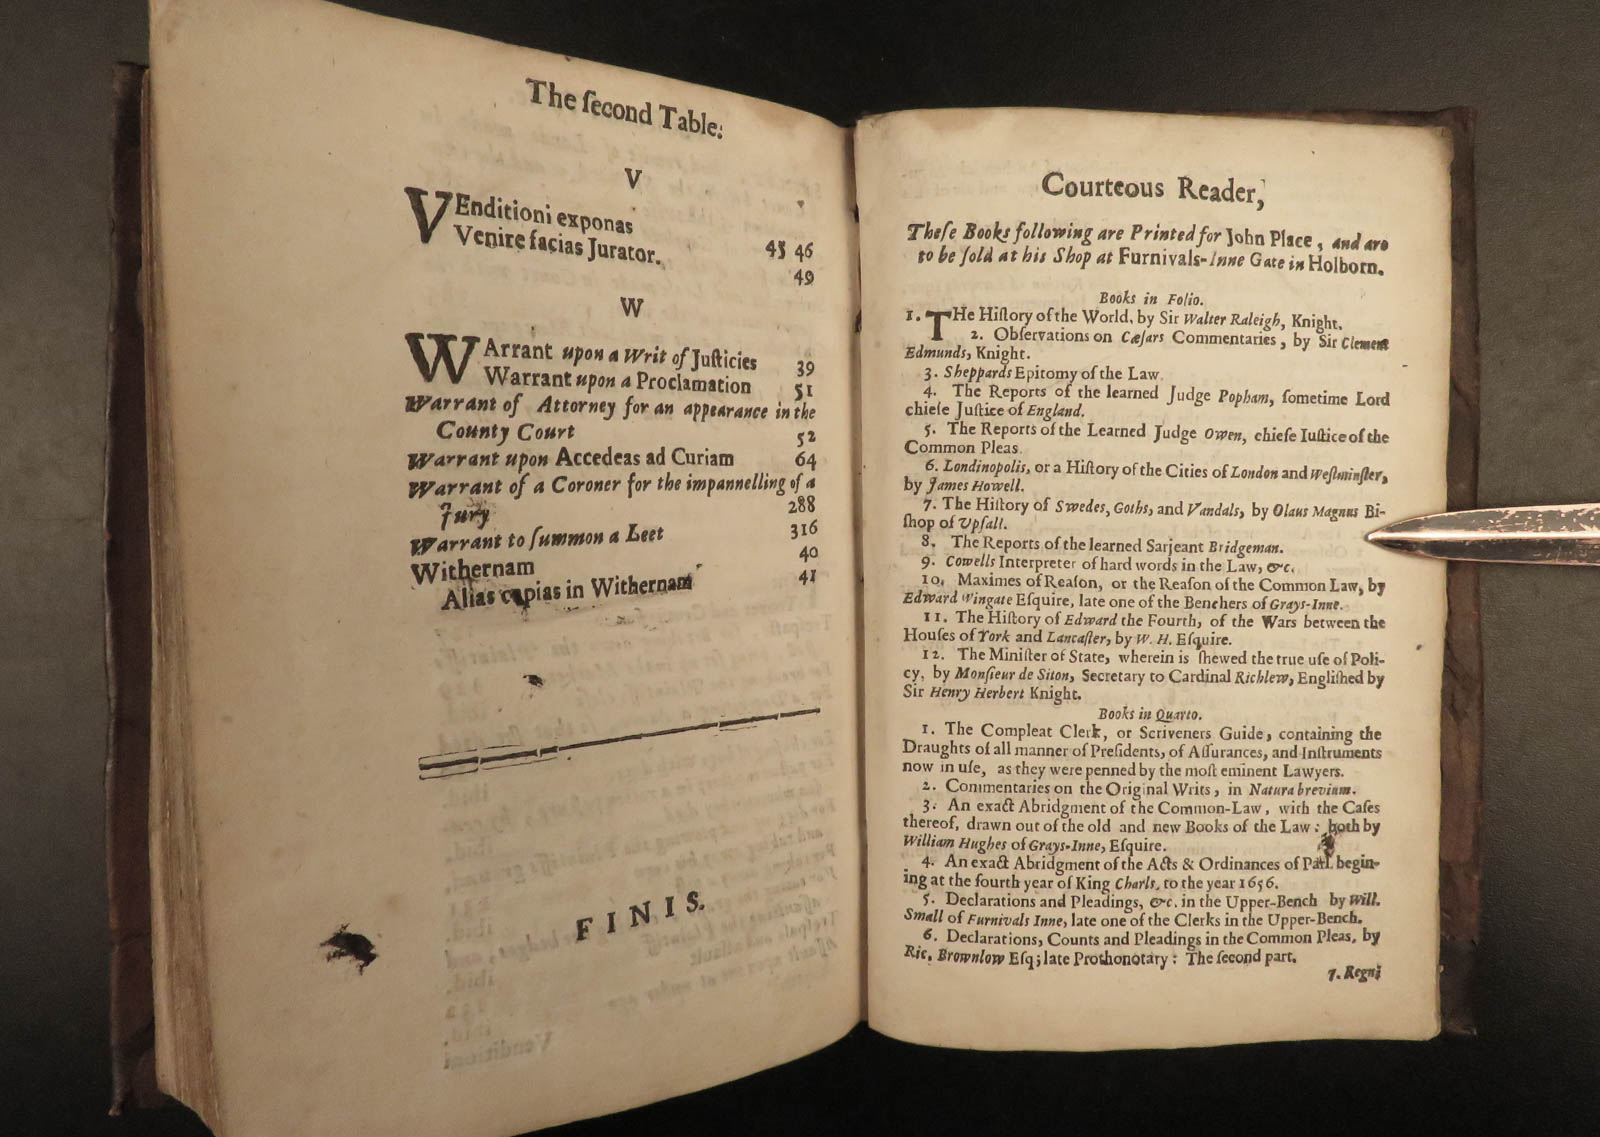 The ſecond Table.
V
VEnditioni exponas
45 46
Venire facias Jurator.
49
W
WArrant upon a Writ of Juſticies 39
Warrant upon a Proclamation 51
Warrant of Attorney for an appearance in the
County Court 52
Warrant upon Accedeas ad Curiam 64
Warrant of a Coroner for the impannelling of a
Jury 288
Warrant to ſummon a Leet 316
Withernam 40
Alias capias in Withernam 41
FINIS.
Courteous Reader,
Theſe Books following are Printed for John Place, and are
to be ſold at his Shop at Furnivals-Inne Gate in Holborn.
Books in Folio.
1. THe Hiſtory of the World, by Sir Walter Raleigh, Knight.
2. Obſervations on Cæſars Commentaries, by Sir Clement
Edmunds, Knight.
3. Sheppards Epitomy of the Law.
4. The Reports of the learned Judge Popham, ſometime Lord
chiefe Juſtice of England.
5. The Reports of the Learned Judge Owen, chiefe Iuſtice of the
Common Pleas.
6. Londinopolis, or a Hiſtory of the Cities of London and Weſtminſter,
by James Howell.
7. The Hiſtory of Swedes, Goths, and Vandals, by Olaus Magnus Bi-
ſhop of Upſall.
8. The Reports of the learned Sarjeant Bridgeman.
9. Cowells Interpreter of hard words in the Law, &c.
10. Maximes of Reaſon, or the Reaſon of the Common Law, by
Edward Wingate Eſquire, late one of the Benchers of Grays-Inne.
11. The Hiſtory of Edward the Fourth, of the Wars between the
Houſes of York and Lancaſter, by W. H. Eſquire.
12. The Miniſter of State, wherein is ſhewed the true uſe of Poli-
cy, by Monſieur de Siton, Secretary to Cardinal Richlew, Engliſhed by
Sir Henry Herbert Knight.
Books in Quarto.
1. The Compleat Clerk, or Scriveners Guide, containing the
Draughts of all manner of Preſidents, of Aſſurances, and Inſtruments
now in uſe, as they were penned by the moſt eminent Lawyers.
2. Commentaries on the Original Writs, in Natura brevium.
3. An exact Abridgment of the Common-Law, with the Caſes
thereof, drawn out of the old and new Books of the Law: both by
William Hughes of Grays-Inne, Eſquire.
4. An exact Abridgment of the Acts & Ordinances of Parl. begin-
ing at the fourth year of King Charls, to the year 1656.
5. Declarations and Pleadings, &c. in the Upper-Bench by Will.
Small of Furnivals Inne, late one of the Clerks in the Upper-Bench.
6. Declarations, Counts and Pleadings in the Common Pleas, by
Ric. Brownlow Eſq; late Prothonotary: The ſecond part.
7. Regni